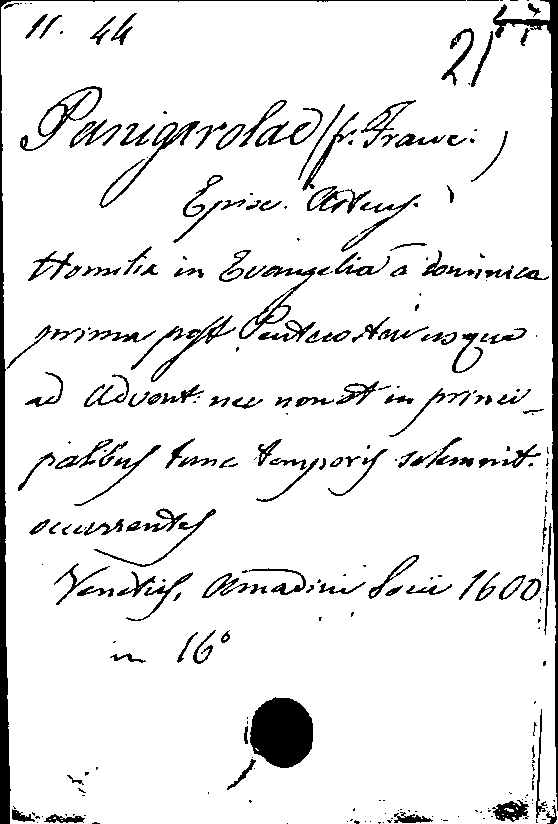 11. 44
21
Panigarolae (fr. Franc.)
Episc. Astens.
Homilia in Evangelia a dominica
prima post Pentecosten usque
ad Advent. nec non et in princi-
palibus tunc temporis solemnit.
occurrentes
Venetiis, Amadini Socii 1600
in 16°